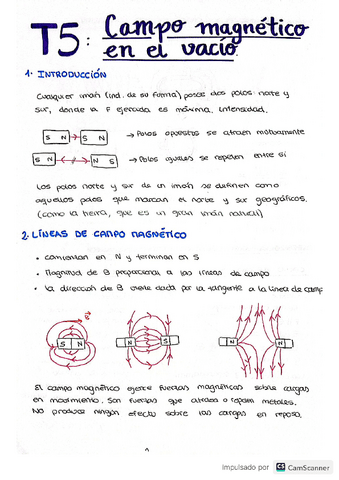 T5: Campo magnético
en el vacío
1. INTRODUCCIÓN
Cualquier imán (ind. de su forma) posee dos polos: norte y
sur, donde la F ejercida es máxima intensidad.
S N S N → Polos opuestos se atraen mutuamente
S N N S → Polos iguales se repelen entre sí
Los polos norte y sur de un imán se definen como
aquellos polos que marcan el norte y sur geográficos.
(como la tierra, que es un gran imán natural)
2. LÍNEAS DE CAMPO MAGNÉTICO
• comienzan en N y terminan en S
• Magnitud de B proporcional a las líneas de campo
• La dirección de B viene dada por la tangente a la línea de camp
B
S N N S N N
El campo magnético ejerce fuerzas magnéticas sobre cargas
en movimiento. Son fuerzas que atraen o repelen metales.
NO produce ningún efecto sobre las cargas en reposo.
Impulsado por CS CamScanner